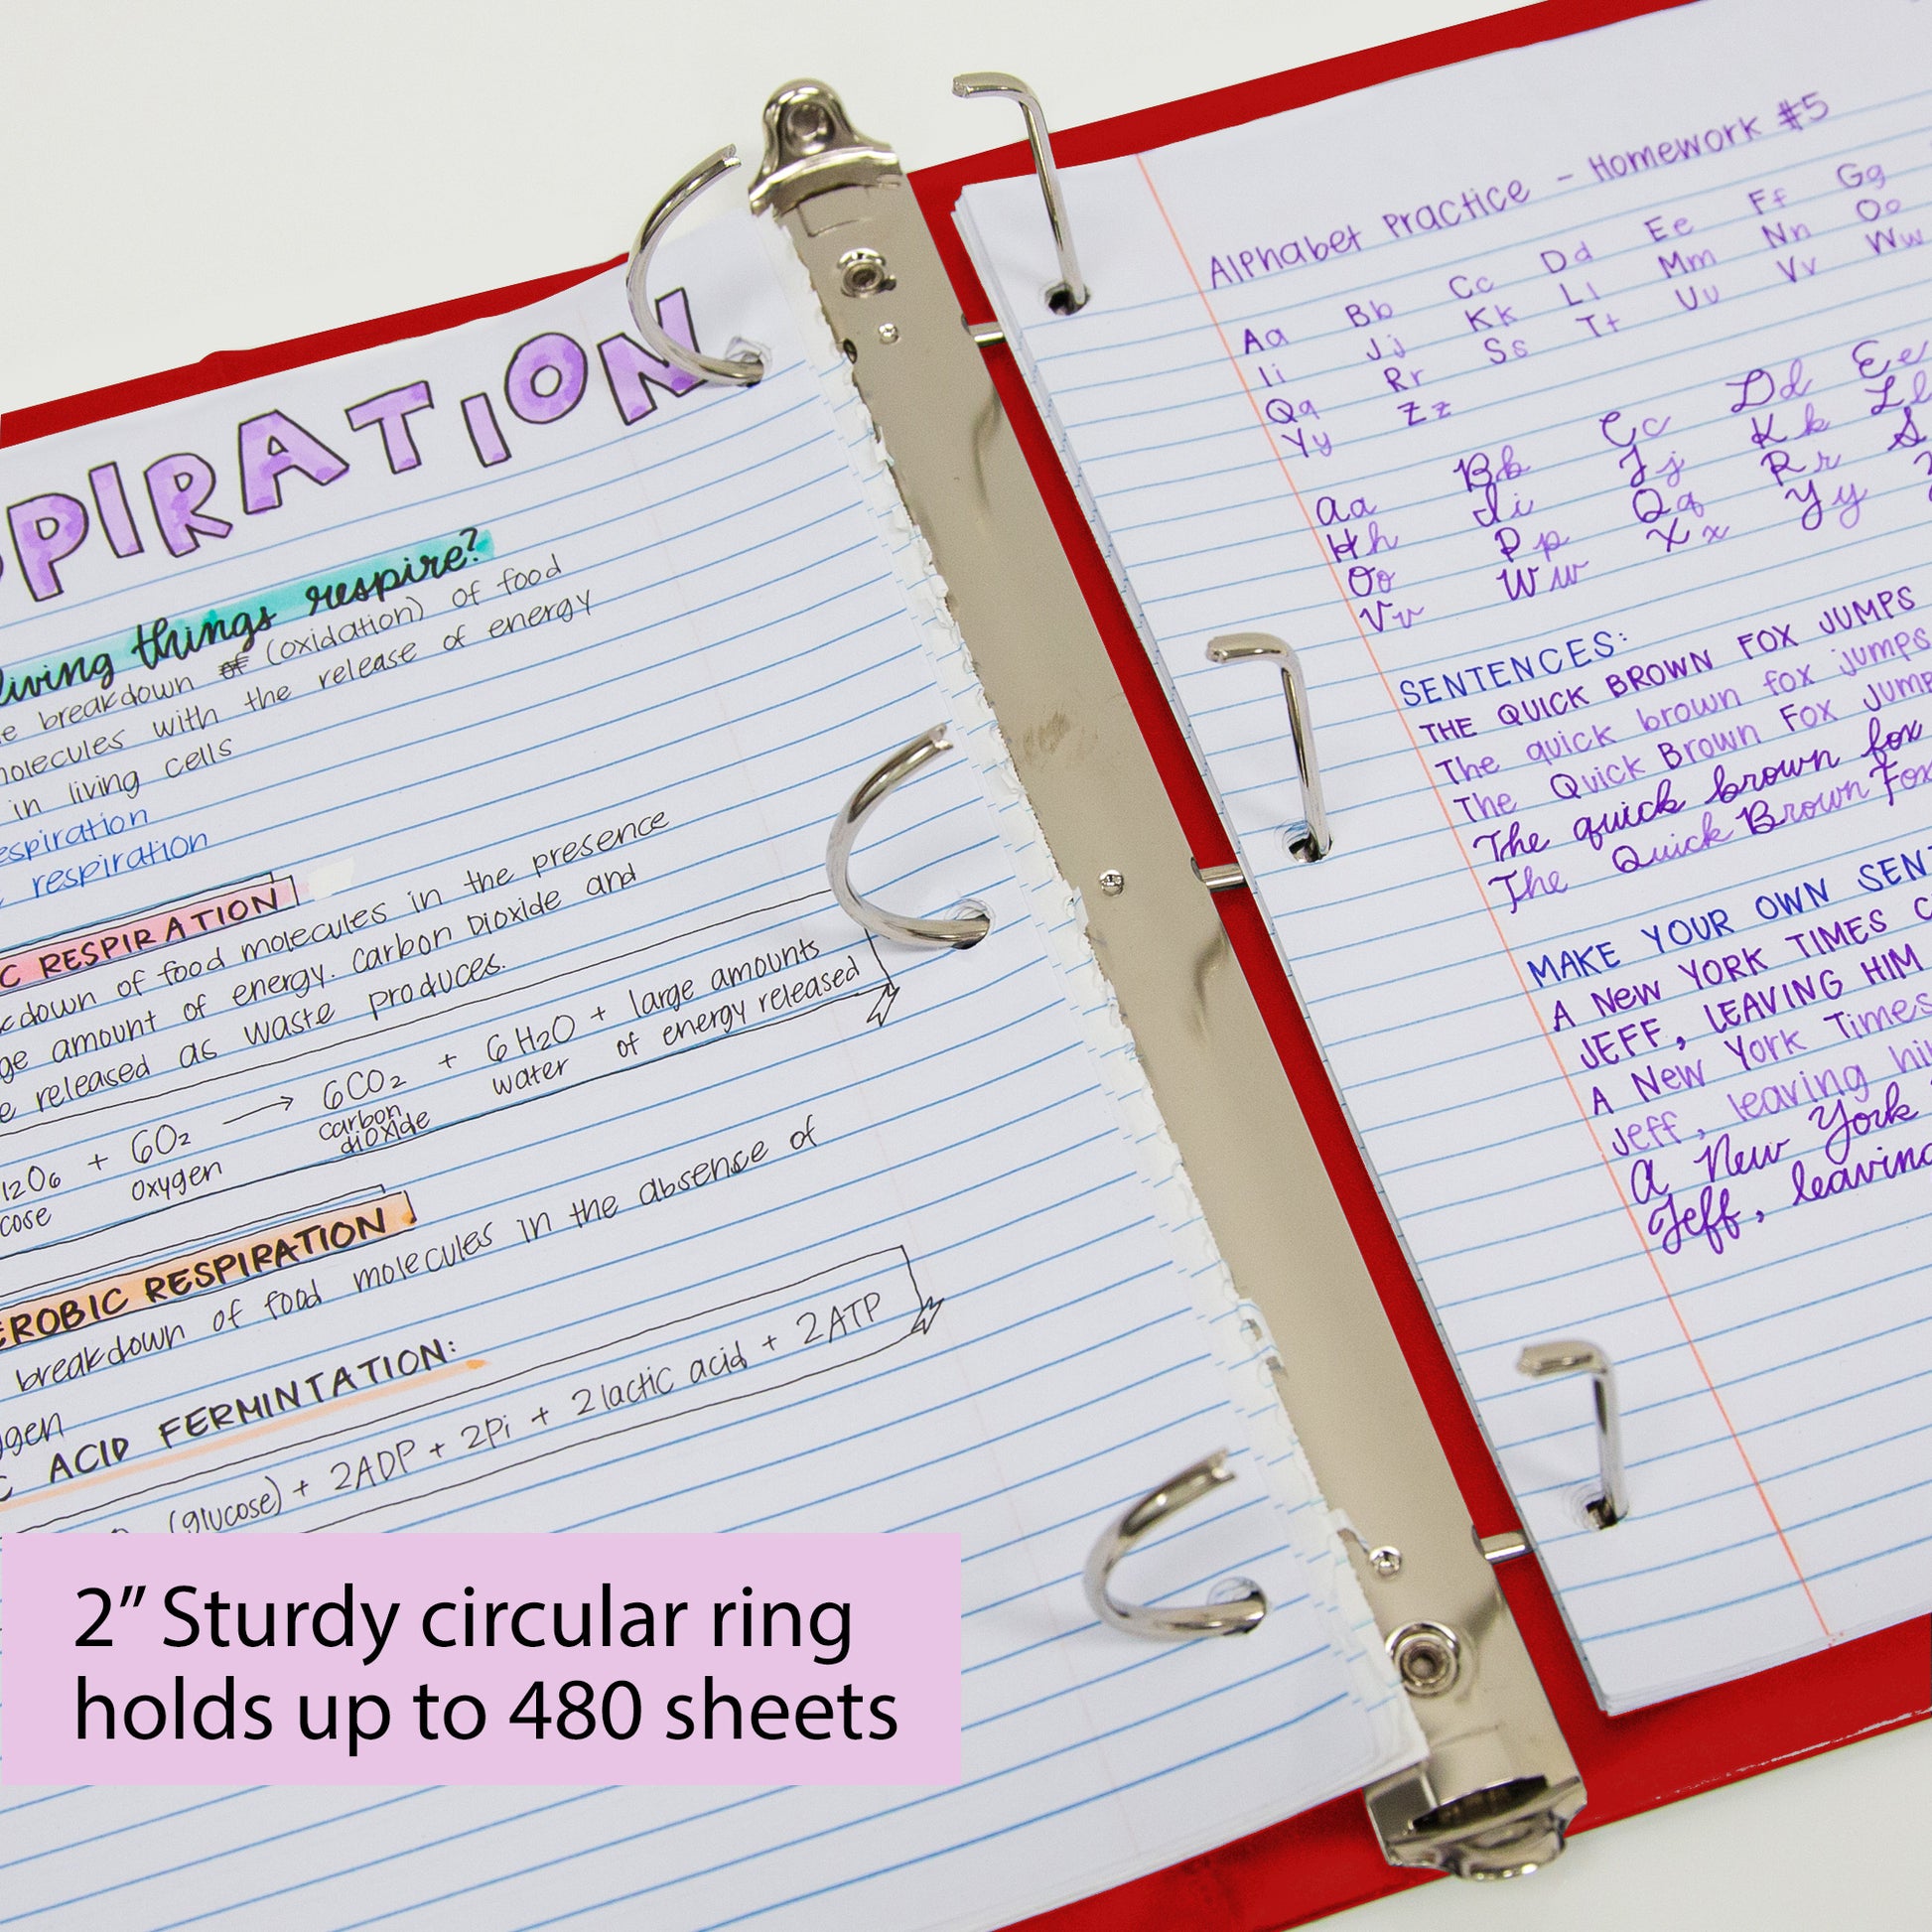 PIRATION
living things respire?
breakdown of (oxidation) of food
molecules with the release of energy
in living cells
respiration
respiration
C RESPIRATION
down of food molecules in the presence
amount of energy. Carbon Dioxide and
released as waste produces.
12O6 + 6O2 → 6CO2 + 6H2O + large amounts
oxygen carbon dioxide water of energy released
EROBIC RESPIRATION
breakdown of food molecules in the absence of
C ACID FERMINTATION:
(glucose) + 2ADP + 2Pi + 2 lactic acid + 2ATP
2” Sturdy circular ring
holds up to 480 sheets
Alphabet Practice - Homework #5
Aa Bb Cc Dd Ee Ff Gg
Ii Jj Kk Ll Mm Nn Oo
Qq Rr Ss Tt Uu Vv Ww
Yy Zz
Aa Bb Cc Dd Ee
Hh Ii Jj Kk Ll
Oo Pp Qq Rr S
Vv Ww Xx Yy
SENTENCES:
THE QUICK BROWN FOX JUMPS
The quick brown fox jumps
The Quick Brown Fox Jump
The quick brown fox
The Quick Brown Fox
MAKE YOUR OWN SEN
A NEW YORK TIMES C
JEFF, LEAVING HIM
A New York Times
Jeff, leaving hi
A New York
Jeff, leaving